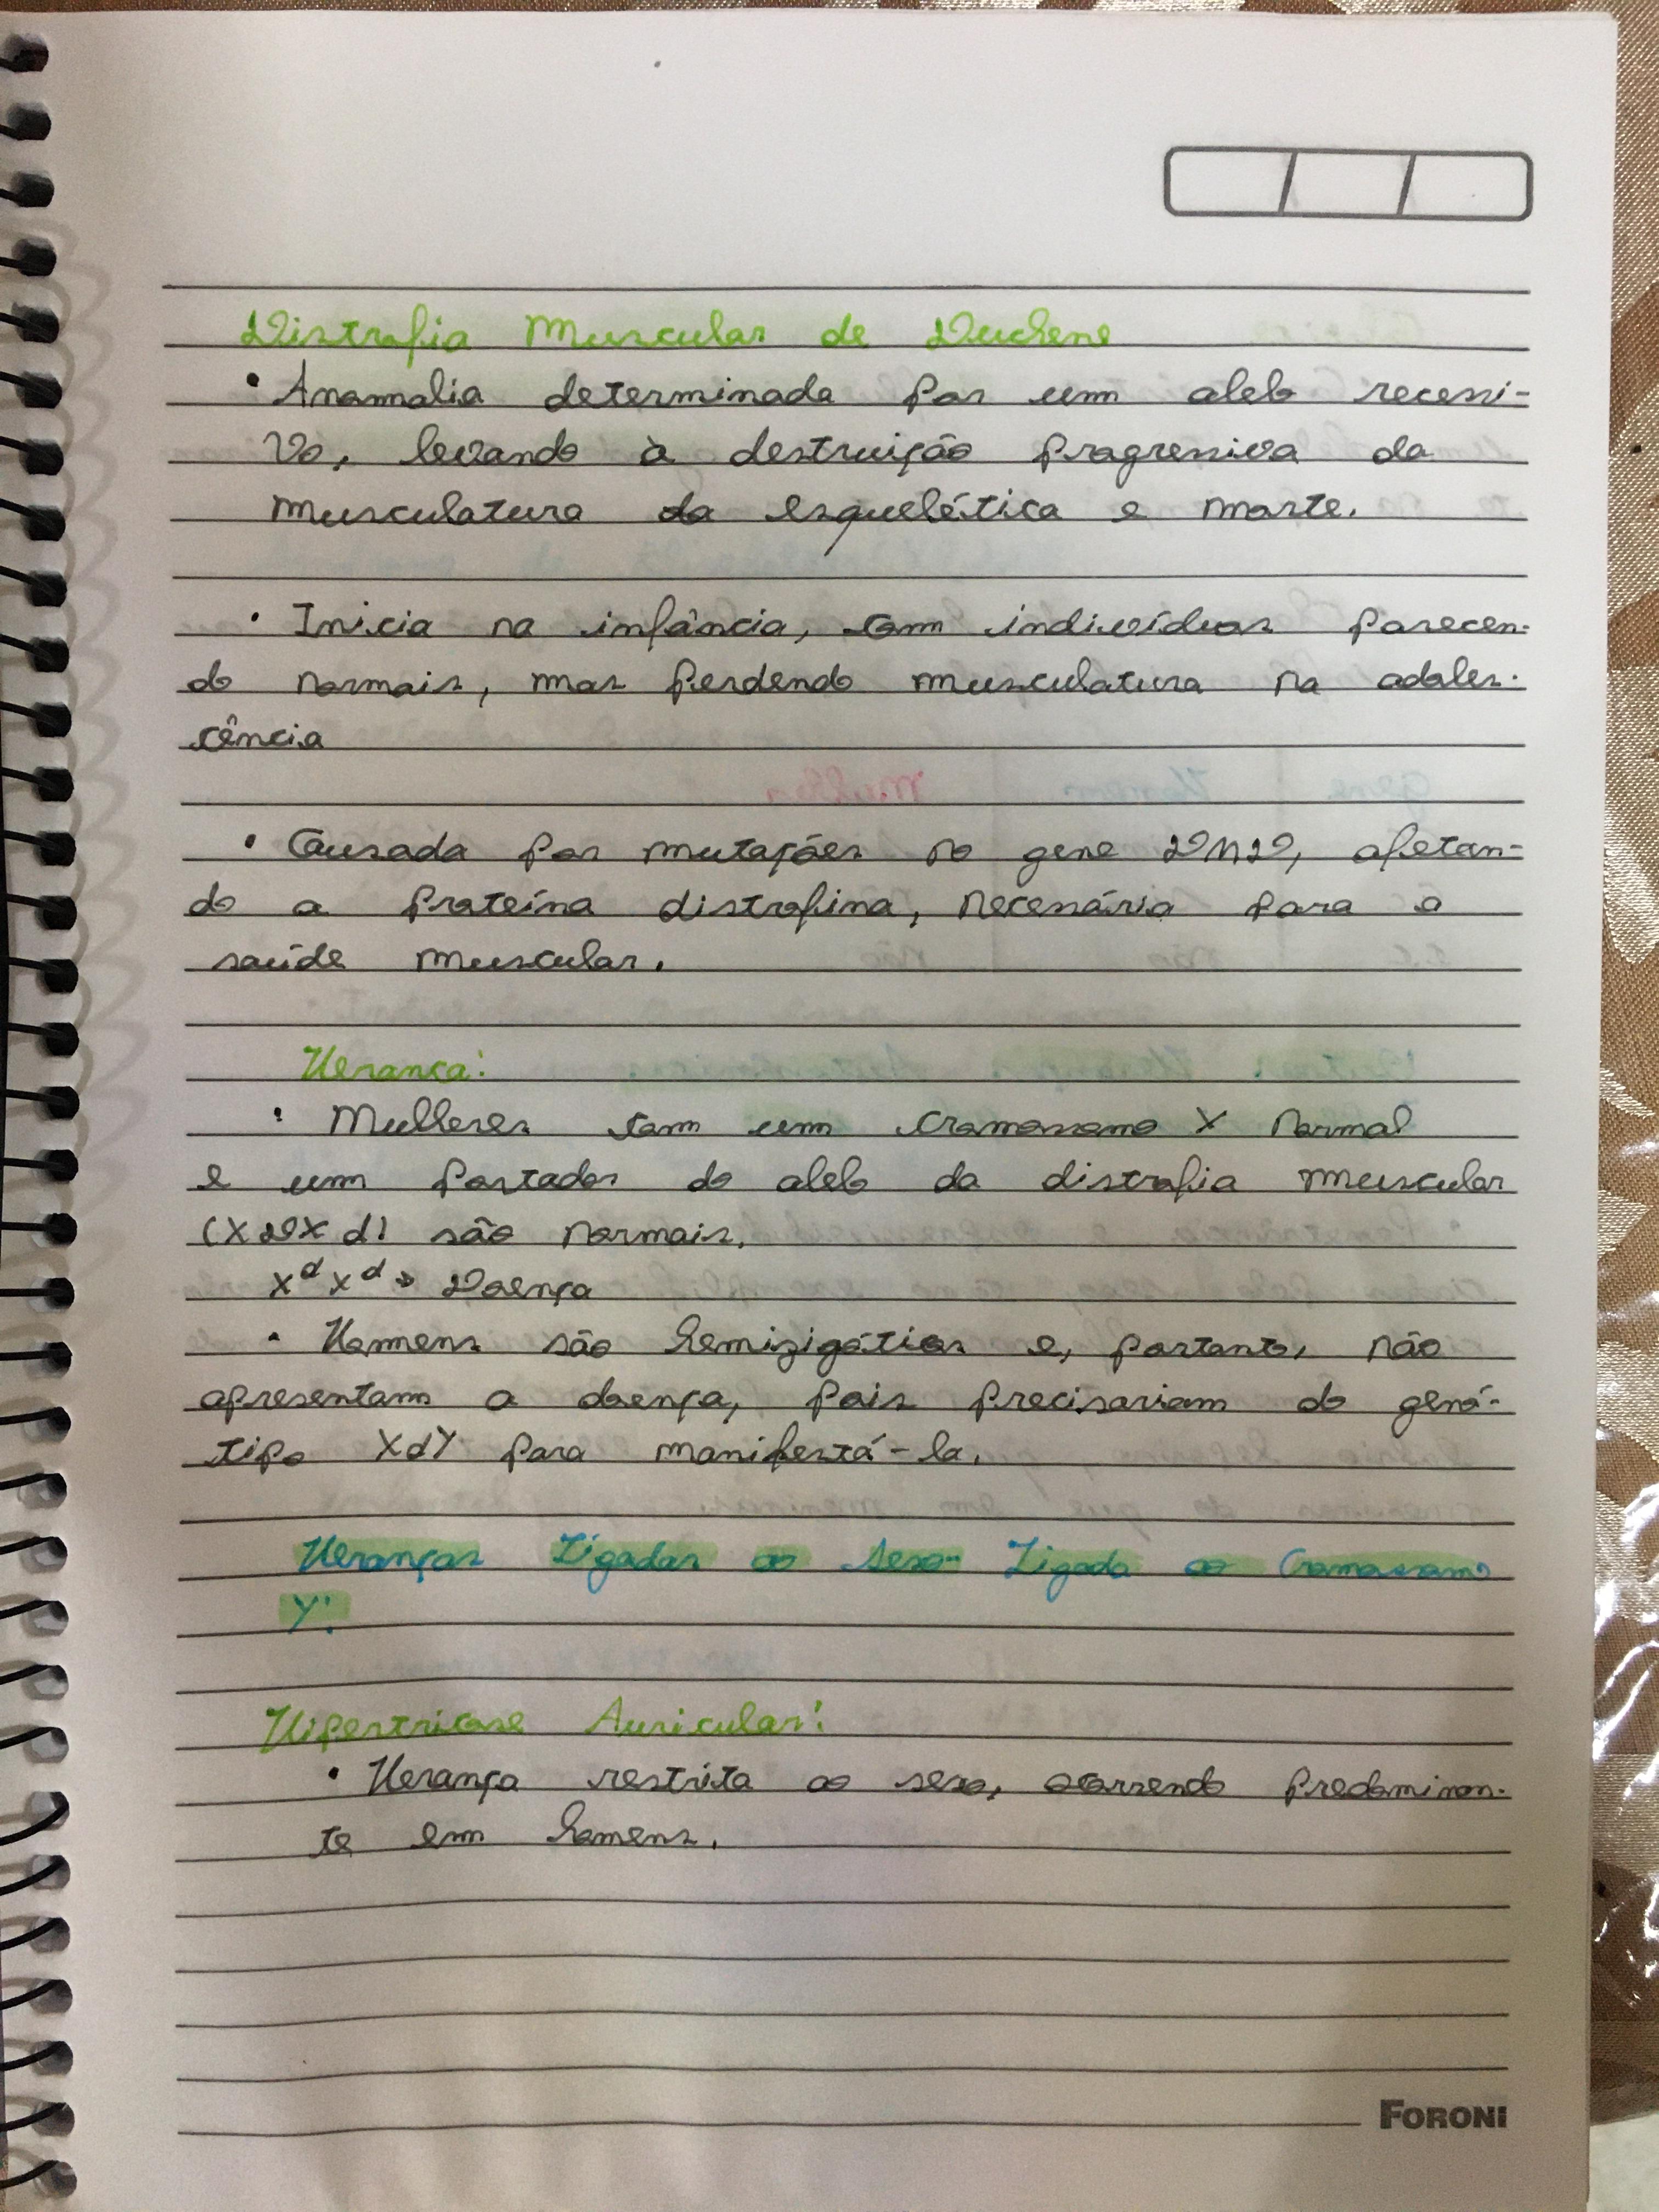 Distrofia Muscular de Duchene
• Anammalia determinada por um alelo recessi-
vo, levando à destruição progressiva da
musculatura da esquelética e morte.
• Inicia na infância, com indivíduos parecen-
do normais, mas perdendo musculatura na adoles-
cência
• Causada por mutações no gene DMD, afetan-
do a proteína distrofina, necessária para a
saúde muscular.
Herança:
• Mulheres com um cromossomo X normal
e um portador do alelo da distrofia muscular
(XDX d) são normais.
X^d X^d → Doença
• Homens são hemizigóticos e, portanto, não
apresentam a doença, pois precisariam do genó-
tipo XdY para manifestá-la.
Heranças Ligadas ao Sexo- Ligada ao Cromossomo
Y:
Hipertricose Auricular:
• Herança restrita ao sexo, ocorrendo predominan-
te em homens.
FORONI